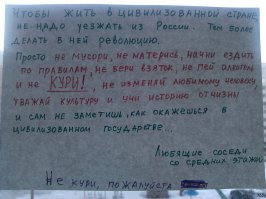 Чтобы жить в цивилизованной стране,
не надо уезжать из России... Тем более
делать в ней революцию.
Просто не мусори, не матерись, начни ездить
по правилам, не бери взяток, не пей алкоголь
и не КУРИ!, не изменяй любимому человеку,
уважай культуру и учи историю отчизны
и сам не заметишь, как окажешься в
цивилизованном государстве...
Любящие соседи
со средних этажей
Не кури, пожалуйста